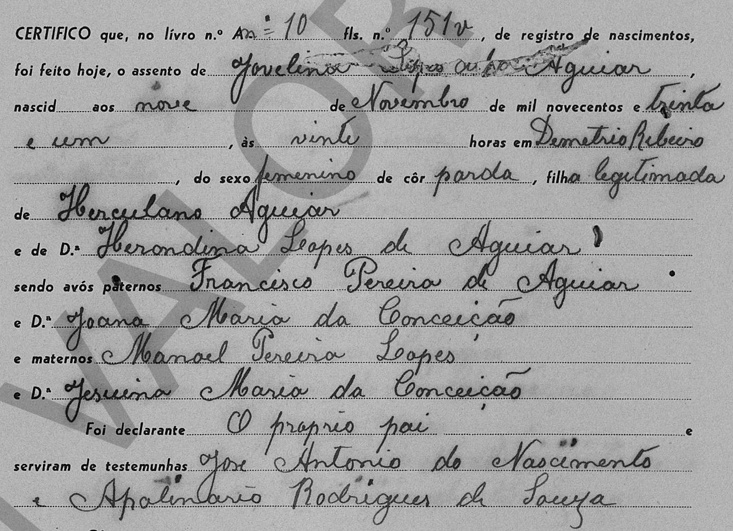 CERTIFICO que, no livro n.º A n.º 10 fls. n.º 151v, de registro de nascimentos,
foi feito hoje, o assento de Jovelina Aguiar,
nascid aos nove de Novembro de mil novecentos e trinta
e um, às vinte horas em Demetrio Ribeiro
, do sexo femenino de côr parda, filha legitimada
de Herculano Aguiar
e de D.ª Herondina Lopes de Aguiar
sendo avós paternos Francisco Pereira de Aguiar
e D.ª Joana Maria da Conceição
e maternos Manoel Pereira Lopes
e D.ª Jesuina Maria da Conceição
Foi declarante O proprio pai e
serviram de testemunhas Jose Antonio do Nascimento
e Apolinario Rodrigues de Souza
VALOR